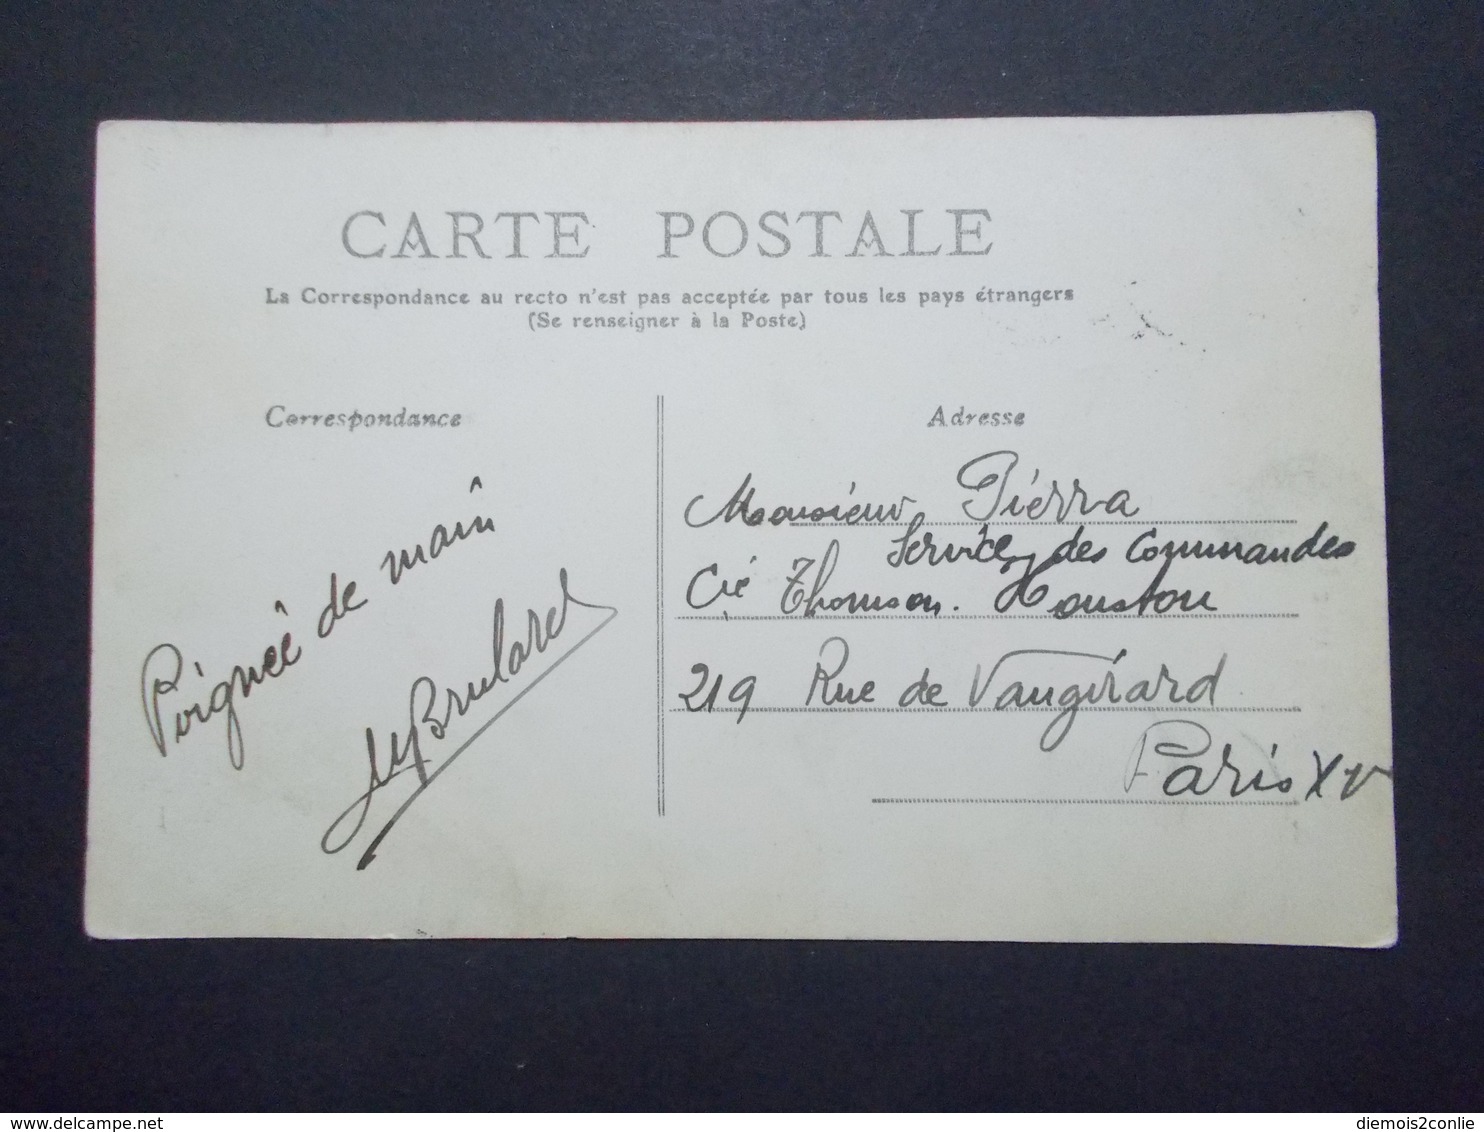 CARTE POSTALE
La Correspondance au recto n'est pas acceptée par tous les pays étrangers
(Se renseigner à la Poste)
Correspondance
Poignée de main
Brulard
Adresse
Monsieur Pierra
Service des Commandes
Cie Thomson. Houston
219 Rue de Vaugirard
Paris XV
diemois2conlie